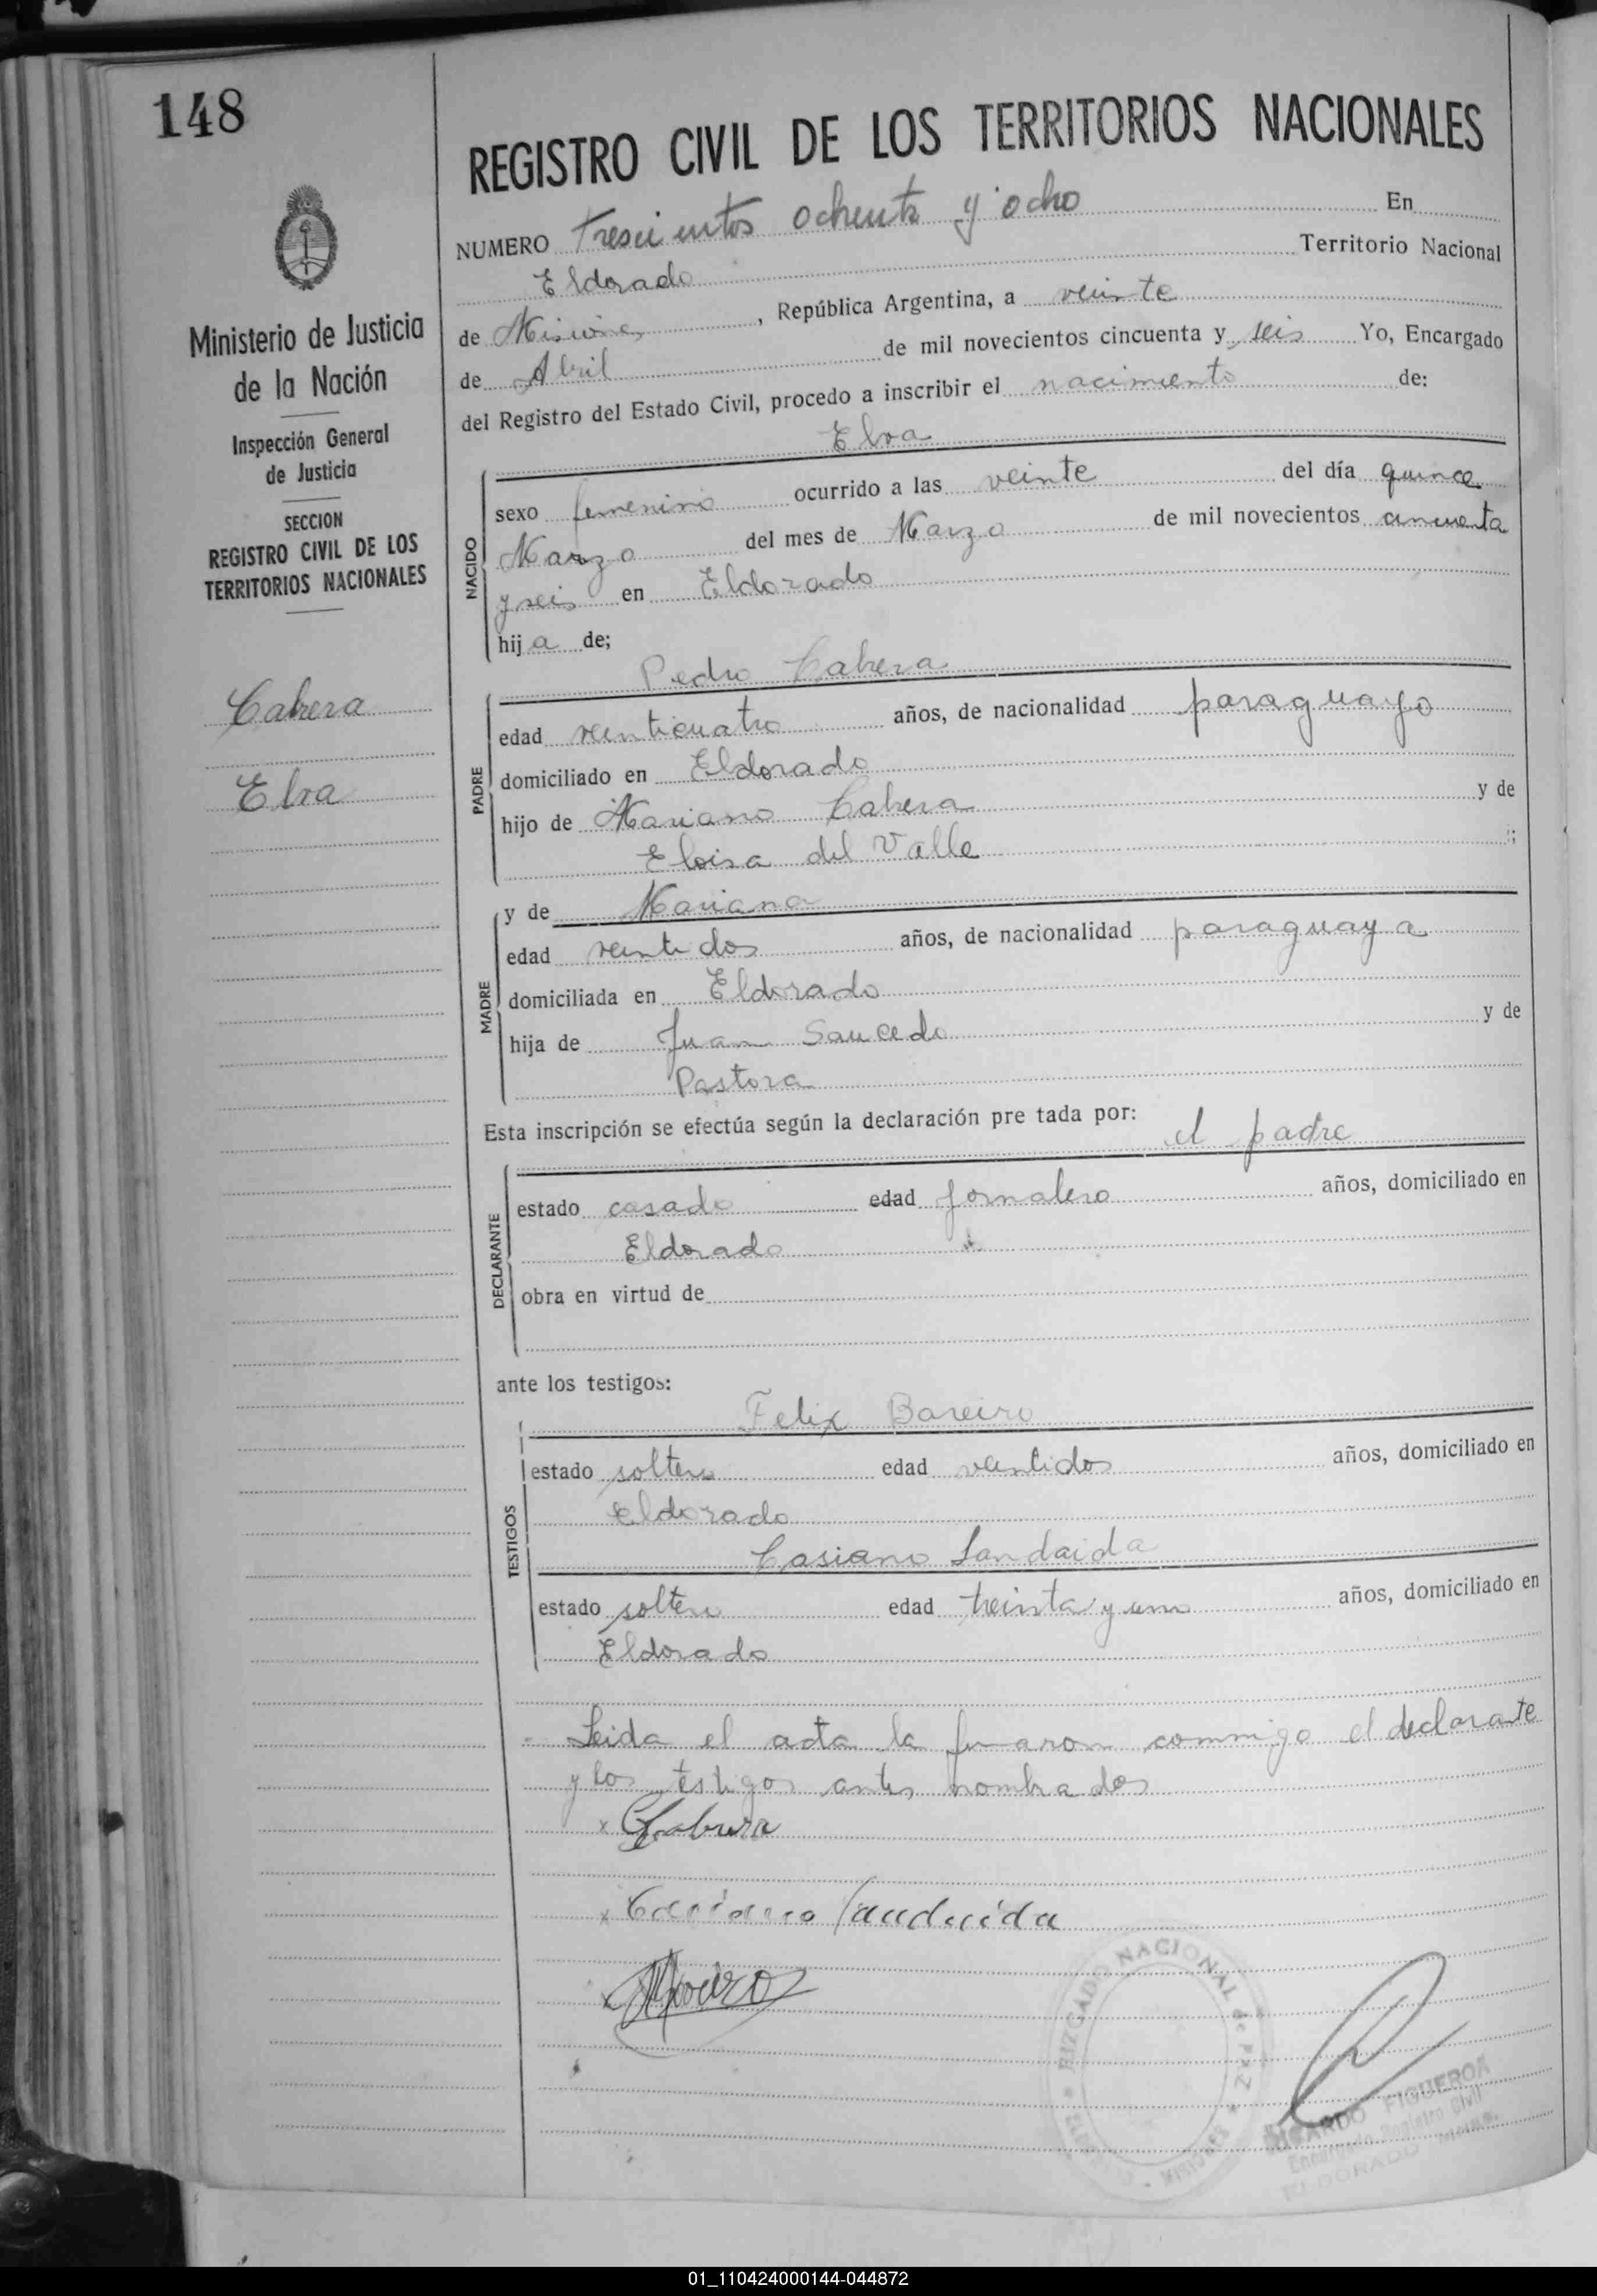 148
REGISTRO CIVIL DE LOS TERRITORIOS NACIONALES
NUMERO Trescientos ochenta y ocho En
Eldorado Territorio Nacional
de Misiones, República Argentina, a veinte
de Abril de mil novecientos cincuenta y seis Yo, Encargado
del Registro del Estado Civil, procedo a inscribir el nacimiento de:
Elva
Ministerio de Justicia
de la Nación
Inspección General
de Justicia
SECCION
REGISTRO CIVIL DE LOS
TERRITORIOS NACIONALES
Cabrera
Elva
NACIDO
sexo femenino ocurrido a las veinte del día quince
Marzo del mes de Marzo de mil novecientos cincuenta
y seis en Eldorado
hija de;
Pedro Cabrera
PADRE
edad veinticuatro años, de nacionalidad paraguayo
domiciliado en Eldorado
hijo de Mariano Cabrera y de
Eloisa del Valle ;
MADRE
y de Mariana
edad veintidos años, de nacionalidad paraguaya
domiciliada en Eldorado
hija de Juan Saucedo y de
Pastora
Esta inscripción se efectúa según la declaración pre tada por: el padre
DECLARANTE
estado casado edad jornalero años, domiciliado en
Eldorado
obra en virtud de
ante los testigos:
Felix Bareiro
TESTIGOS
estado soltero edad veintidos años, domiciliado en
Eldorado
Casiano Landaida
estado soltero edad treinta y uno años, domiciliado en
Eldorado
Leida el acta la firmaron conmigo el declarante
y los testigos antes nombrados
x Cabrera
x Casiano Landaida
JUZGADO NACIONAL de PAZ
MISIONES
RICARDO FIGUEROA
Encargado Registro Civil
ELDORADO
01_110424000144-044872